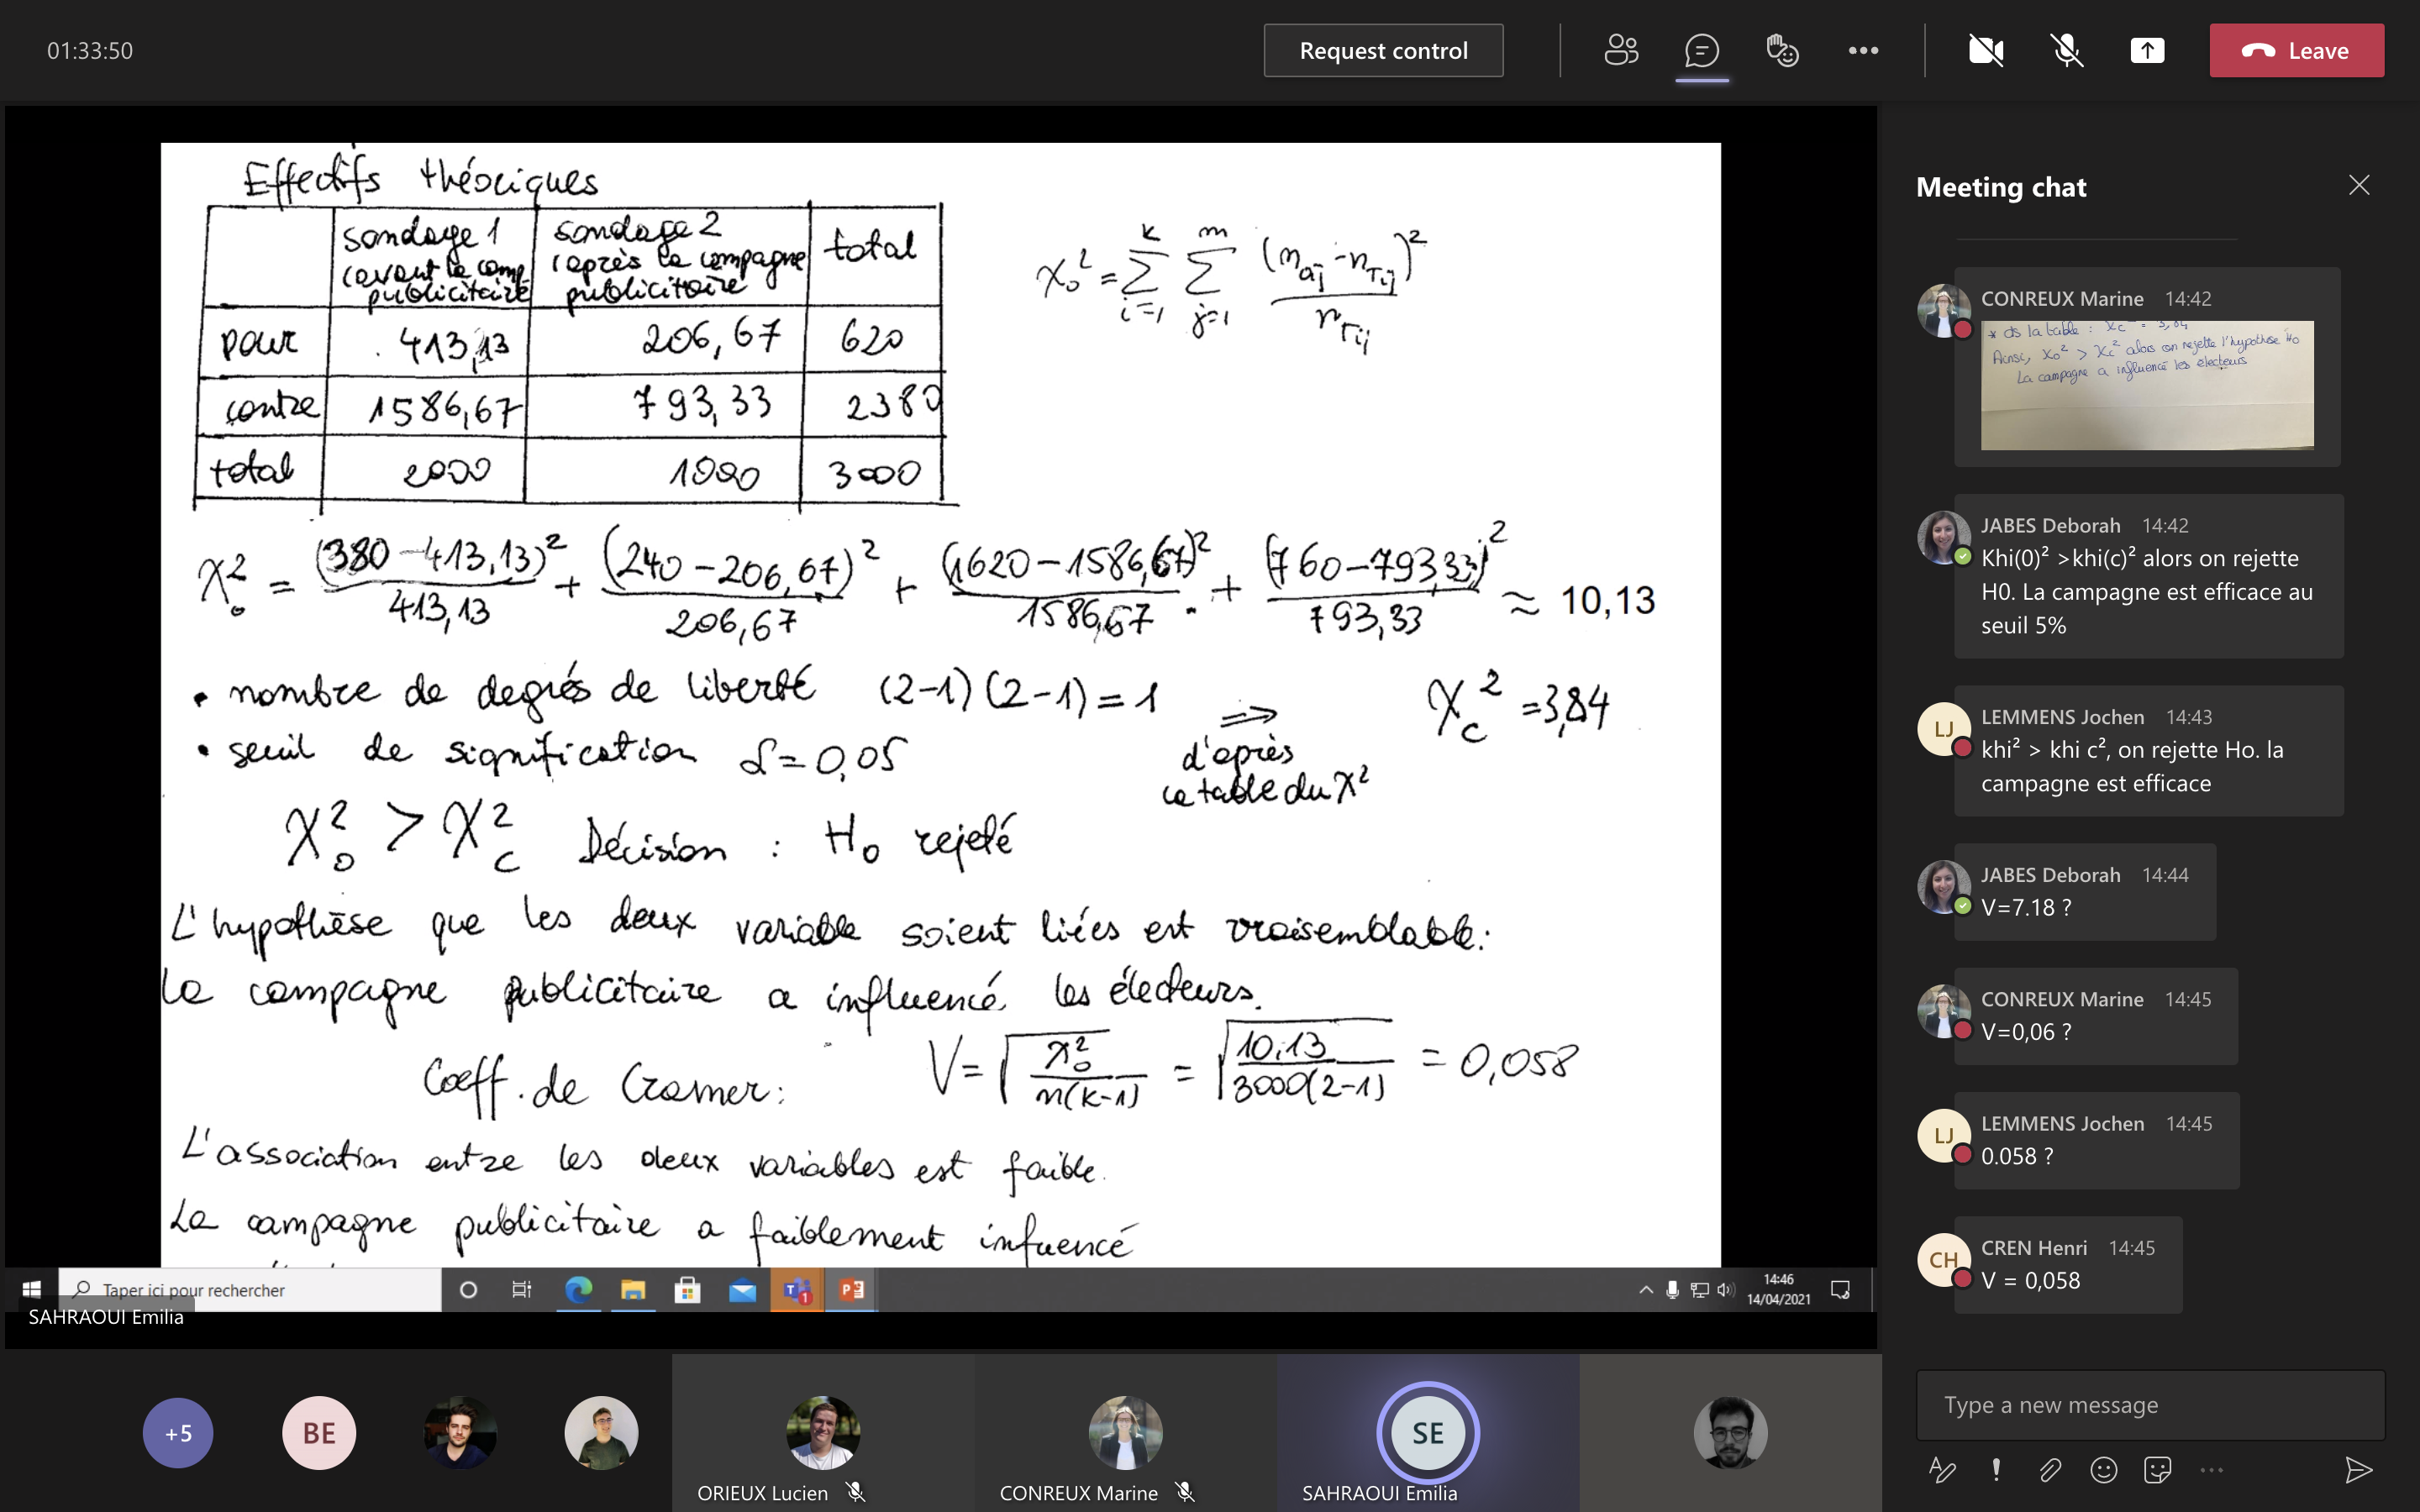 01:33:50
Request control
Leave
Effectifs théoriques
sondage 1 (avant la comp publicitaire
sondage 2 (après la compagne publicitaire
total
pour 413,13 206,67 620
contre 1586,67 793,33 2380
total 2000 1000 3000
χ₀² = Σ i=1 k Σ j=1 m (nₐⱼ - n_Tij)² / n_Tij
χ₀² = (380-413,13)²/413,13 + (240-206,67)²/206,67 + (1620-1586,67)²/1586,67 + (760-793,33)²/793,33 ≈ 10,13
• nombre de degrés de liberté (2-1)(2-1)=1
• seuil de signification α=0,05
⇒ d'après la table du χ²
χc² = 3,84
χ₀² > χc² Décision : H₀ rejeté
L'hypothèse que les deux variable soient liées est vraisemblable.
La compagne publicitaire a influencé les électeurs.
Coeff. de Cramer: V = √(χ₀²/n(k-1)) = √(10,13/3000(2-1)) = 0,058
L'association entre les deux variables est faible.
La campagne publicitaire a faiblement infuencé
Taper ici pour rechercher
14:46
14/04/2021
SAHRAOUI Emilia
Meeting chat
CONREUX Marine 14:42
* ds la table : χc² = 3,84
Ainsi, χ₀² > χc² alors on rejette l'hypothèse H₀
La campagne a influencé les électeurs
JABES Deborah 14:42
Khi(0)² >khi(c)² alors on rejette
H0. La campagne est efficace au
seuil 5%
LJ
LEMMENS Jochen 14:43
khi² > khi c², on rejette Ho. la
campagne est efficace
JABES Deborah 14:44
V=7.18 ?
CONREUX Marine 14:45
V=0,06 ?
LJ
LEMMENS Jochen 14:45
0.058 ?
CH
CREN Henri 14:45
V = 0,058
Type a new message
+5
BE
SE
ORIEUX Lucien
CONREUX Marine
SAHRAOUI Emilia